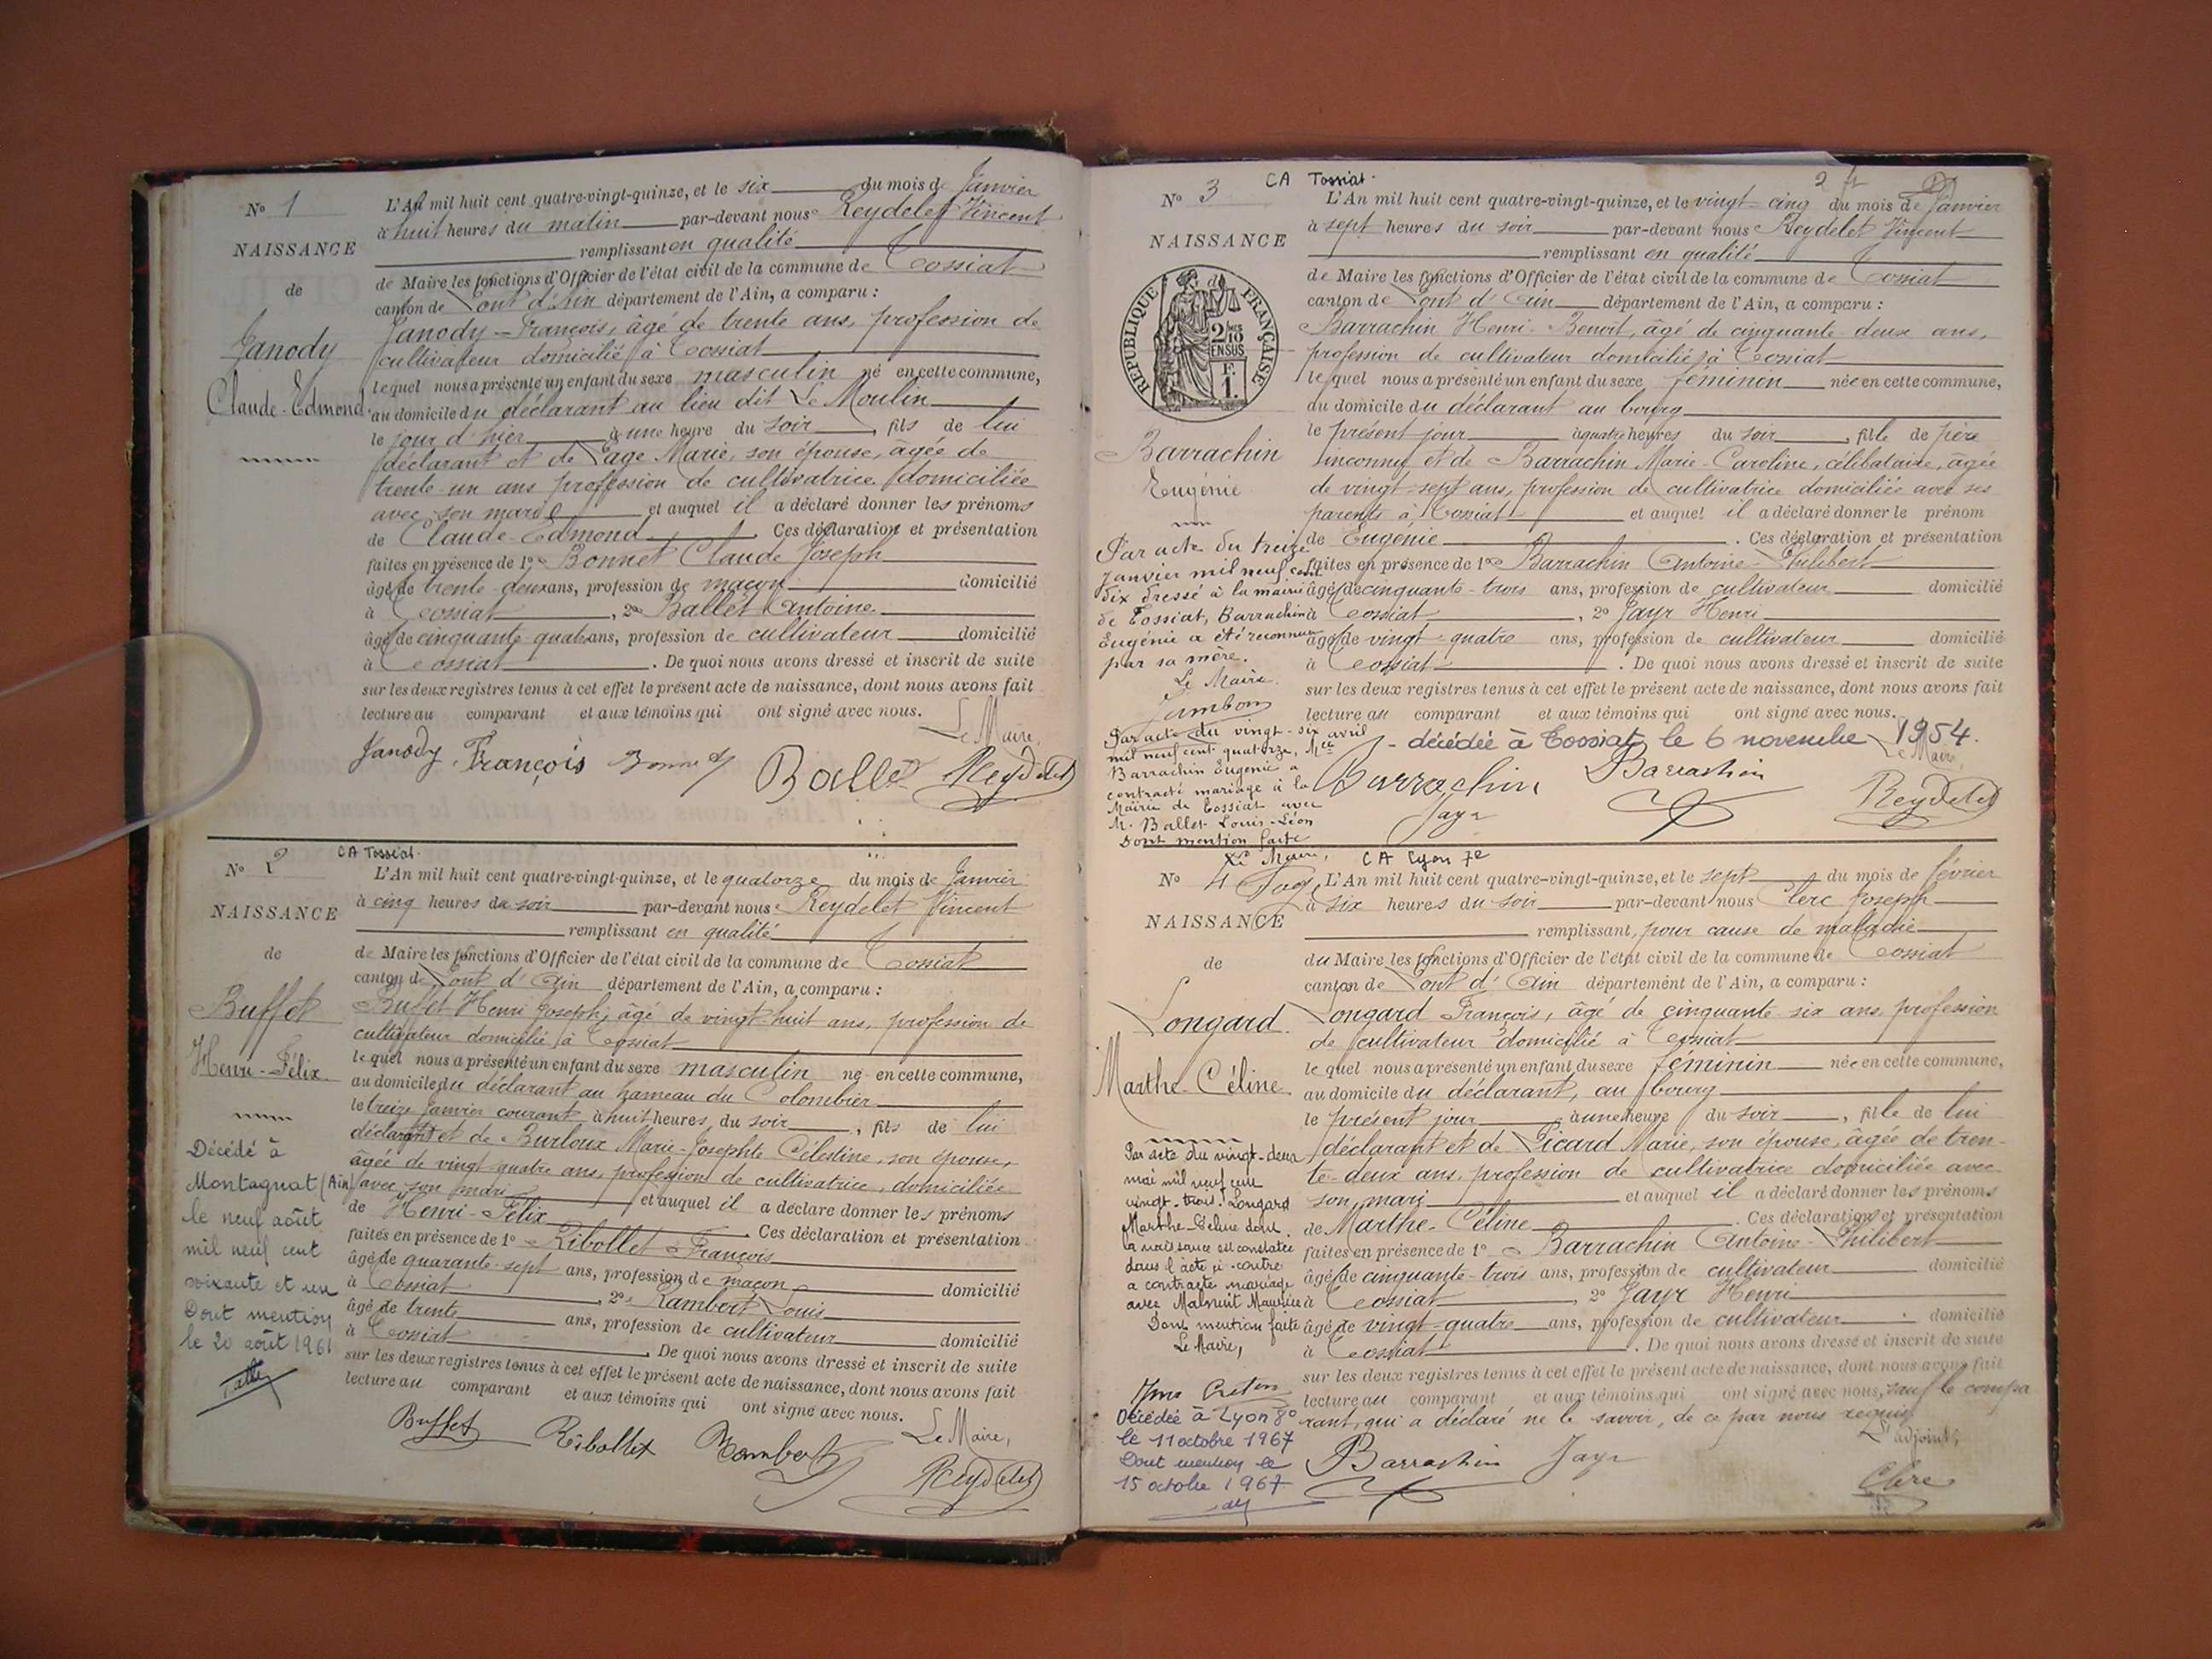 N° 1
NAISSANCE
de
Janody
Claude-Edmond
L'An mil huit cent quatre-vingt-quinze, et le six du mois de Janvier
à huit heures du matin par-devant nous Reydelet Vincent
remplissant en qualité
de Maire les fonctions d'Officier de l'état civil de la commune de Tossiat
canton de Pont d'Ain département de l'Ain, a comparu :
Janody François, âgé de trente ans, profession de
cultivateur domicilié à Tossiat
lequel nous a présenté un enfant du sexe masculin né en cette commune,
au domicile du déclarant au lieu dit Le Moulin
le jour d'hier à une heure du soir, fils de lui
déclarant et de Page Marie, son épouse, âgée de
trente-un ans profession de cultivatrice domiciliée
avec son mari et auquel il a déclaré donner les prénoms
de Claude-Edmond. Ces déclaration et présentation
faites en présence de 1° Bonnet Claude Joseph
âgé de trente-deux ans, profession de maçon domicilié
à Tossiat, 2° Ballet Antoine
âgé de cinquante-quatre ans, profession de cultivateur domicilié
à Tossiat. De quoi nous avons dressé et inscrit de suite
sur les deux registres tenus à cet effet le présent acte de naissance, dont nous avons fait
lecture au comparant et aux témoins qui ont signé avec nous.
Le Maire,
Janody François Bonnet Ballet Reydelet
N° 2
CA Tossiat.
NAISSANCE
de
Buffet
Henri-Félix
L'An mil huit cent quatre-vingt-quinze, et le quatorze du mois de Janvier
à cinq heures du soir par-devant nous Reydelet Vincent
remplissant en qualité
de Maire les fonctions d'Officier de l'état civil de la commune de Tossiat
canton de Pont d'Ain département de l'Ain, a comparu :
Buffet Henri Joseph, âgé de vingt-huit ans, profession de
cultivateur domicilié à Tossiat
lequel nous a présenté un enfant du sexe masculin né en cette commune,
au domicile du déclarant au hameau du Colombier
le treize Janvier courant à huit heures du soir, fils de lui
déclarant et de Burloux Marie-Josephte Célestine, son épouse,
âgée de vingt-quatre ans, profession de cultivatrice, domiciliée
avec son mari et auquel il a déclaré donner les prénoms
de Henri-Félix. Ces déclaration et présentation
faites en présence de 1° Ribollet François
âgé de quarante-sept ans, profession de maçon domicilié
à Tossiat, 2° Rambert Louis
âgé de trente ans, profession de cultivateur domicilié
à Tossiat. De quoi nous avons dressé et inscrit de suite
sur les deux registres tenus à cet effet le présent acte de naissance, dont nous avons fait
lecture au comparant et aux témoins qui ont signé avec nous.
Le Maire,
Buffet Ribollet Rambert Reydelet
Décédé à
Montagnat (Ain)
le neuf août
mil neuf cent
soixante et un
Dont mention
le 20 août 1961
N° 3
CA Tossiat.
2
NAISSANCE
RÉPUBLIQUE FRANÇAISE
2/10 EN SUS
F. 1.
Barrachin
Eugénie
L'An mil huit cent quatre-vingt-quinze, et le vingt-cinq du mois de Janvier
à sept heures du soir par-devant nous Reydelet Vincent
remplissant en qualité
de Maire les fonctions d'Officier de l'état civil de la commune de Tossiat
canton de Pont d'Ain département de l'Ain, a comparu :
Barrachin Henri-Benoit, âgé de cinquante-deux ans,
profession de cultivateur domicilié à Tossiat
lequel nous a présenté un enfant du sexe féminin née en cette commune,
du domicile du déclarant au bourg
le présent jour à quatre heures du soir, fille de père
inconnu et de Barrachin Marie-Caroline, célibataire, âgée
de vingt-sept ans, profession de cultivatrice domiciliée avec ses
parents à Tossiat et auquel il a déclaré donner le prénom
de Eugénie. Ces déclaration et présentation
faites en présence de 1° Barrachin Antoine-Philibert
âgé de cinquante-trois ans, profession de cultivateur domicilié
à Tossiat, 2° Jayr Henri
âgé de vingt-quatre ans, profession de cultivateur domicilié
à Tossiat. De quoi nous avons dressé et inscrit de suite
sur les deux registres tenus à cet effet le présent acte de naissance, dont nous avons fait
lecture au comparant et aux témoins qui ont signé avec nous.
- décédée à Tossiat, le 6 novembre 1954.
Le Maire
Barrachin Barrachin
Jayr Reydelet
Par acte du treize
janvier mil neuf cent
dix dressé à la mairie
de Tossiat, Barrachin
Eugénie a été reconnue
par sa mère.
Le Maire.
Jambon
Par acte du vingt-six avril
mil neuf cent quatorze, Mlle
Barrachin Eugénie a
contracté mariage à la
Mairie de Tossiat avec
M. Ballet Louis-Léon
Dont mention faite
Le Maire,
N° 4
CA Lyon 7e
NAISSANCE
de
Longard
Marthe-Céline
L'An mil huit cent quatre-vingt-quinze, et le sept du mois de février
à six heures du soir par-devant nous Clerc Joseph
remplissant, pour cause de maladie
du Maire les fonctions d'Officier de l'état civil de la commune de Tossiat
canton de Pont d'Ain département de l'Ain, a comparu :
Longard François, âgé de cinquante-six ans profession
de cultivateur domicilié à Tossiat
lequel nous a présenté un enfant du sexe féminin née en cette commune,
au domicile du déclarant, au bourg
le présent jour à une heure du soir, fille de lui
déclarant et de Picard Marie, son épouse, âgée de tren-
te-deux ans, profession de cultivatrice domiciliée avec
son mari et auquel il a déclaré donner les prénoms
de Marthe-Céline. Ces déclaration et présentation
faites en présence de 1° Barrachin Antoine-Philibert
âgé de cinquante-trois ans, profession de cultivateur domicilié
à Tossiat, 2° Jayr Henri
âgé de vingt-quatre ans, profession de cultivateur domicilié
à Tossiat. De quoi nous avons dressé et inscrit de suite
sur les deux registres tenus à cet effet le présent acte de naissance, dont nous avons fait
lecture au comparant et aux témoins qui ont signé avec nous, sauf le compa
rant, qui a déclaré ne le savoir, de ce par nous requis
L'adjoint,
Barrachin Jayr Clerc
Par acte du vingt-deux
mai mil neuf cent
vingt-trois Longard
Marthe-Céline dont
la naissance est constatée
dans l'acte ci-contre
a contracté mariage
avec Malnuit Maurice
Dont mention faite
Le Maire,
Décédée à Lyon 8°
le 11 octobre 1967
Dont mention le
15 octobre 1967